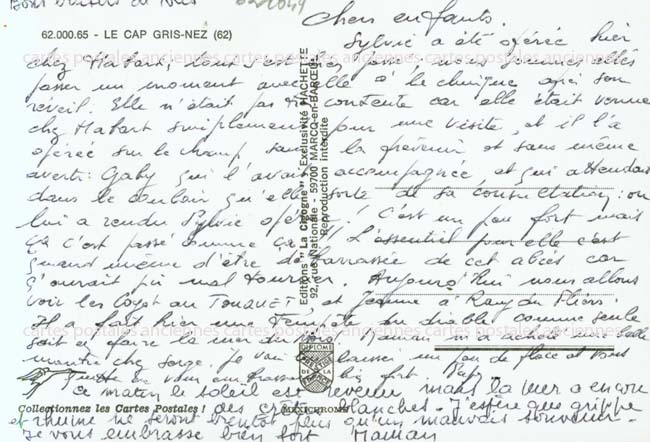 Bons baisers de
62.000.65 - LE CAP GRIS-NEZ (62)
cartes postales anciennes cartes postales anciennes cartes postales anciennes
Editions "La Cigogne" - Exclusivité HACHETTE
92, rue Nationale - 59700 MARCQ-en-BARŒUL
Reproduction interdite
Chers enfants.
Sylvie a été opérée hier
chez Habart, tout s'est passé, nous sommes allés
passer un moment avec elle à la clinique après son
réveil. Elle n'était pas contente car elle était venue
chez Habart simplement pour une visite, et il l'a
opérée sur le champ, sans la prévenir et sans même
avertir Gaby qui l'avait accompagnée, et qui attendait
dans le couloir qu'elle sorte de sa consultation: on
lui a rendu Sylvie opérée! C'est un peu fort mais
ça c'est passé comme ça!! L'essentiel pour elle c'est
quand même d'être débarrassée de cet abcès car
ç'aurait pu mal tourner. Aujourd'hui nous allons
voir les au TOUQUET et Jeanne à Rang du Fliers.
Il a fait hier une Tempête du diable comme seule
sait en faire la mer du Nord. Maman m'a acheté une belle
montre chez Sorge. Je vais laisser un peu de place et vous
embrasse bien fort. Papy
ce matin le soleil est revenu mais la mer a encore
Collectionnez les Cartes Postales !
MEXICHROME
DIPLOME
DE LA
des crêtes blanches. J'espère que grippe
et rhume ne seront bientôt plus qu'un mauvais souvenir.
Je vous embrasse bien fort Maman